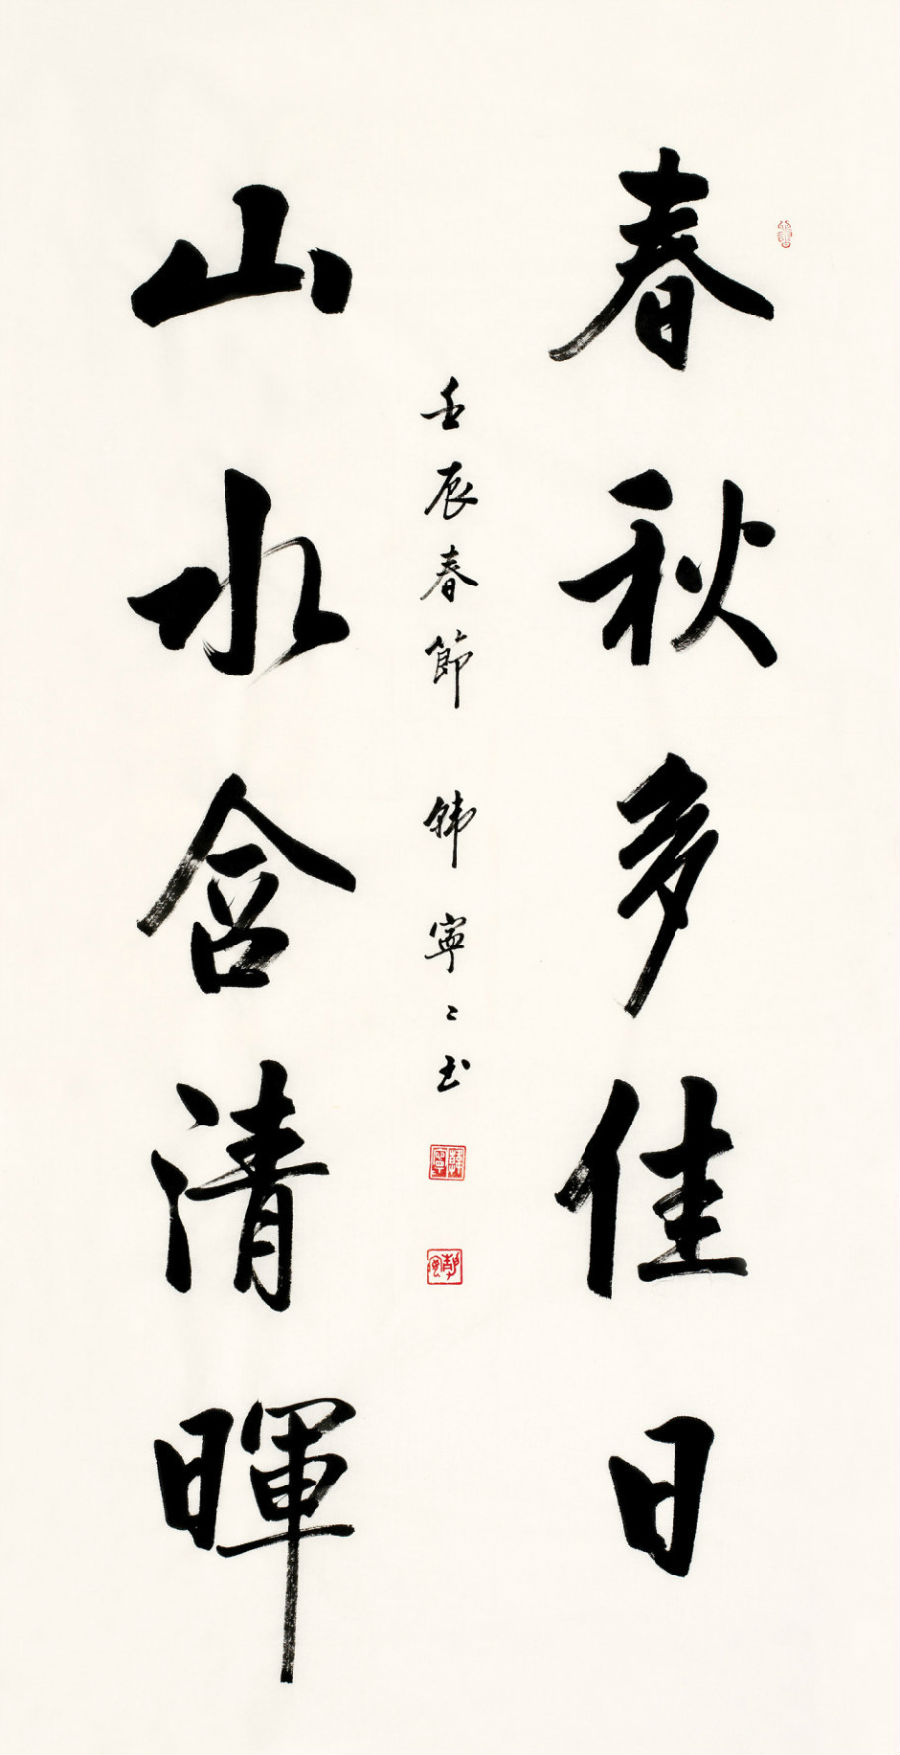 春秋多佳日
壬辰春節 韓寧寧書
山水含清暉